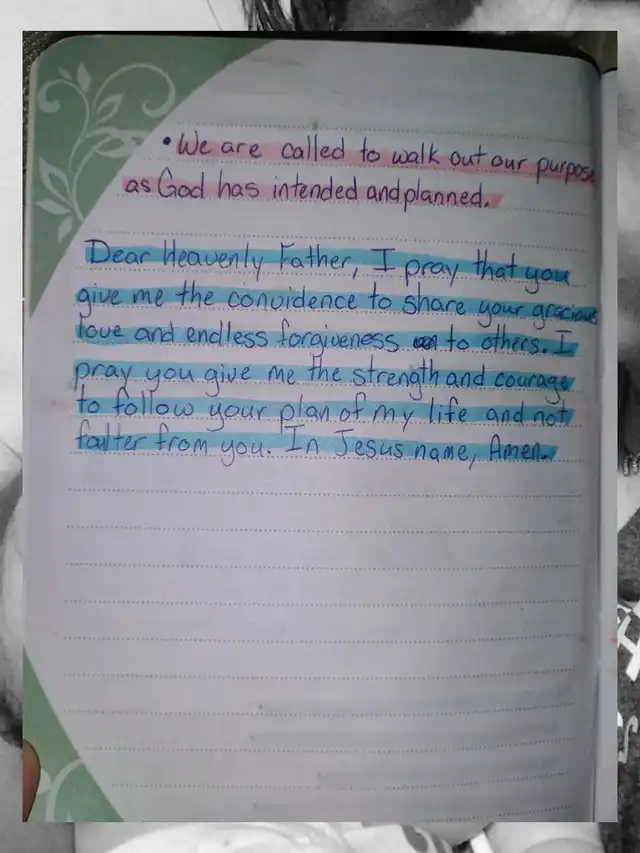 • We are called to walk out our purpose
as God has intended and planned.
Dear Heavenly Father, I pray that you
give me the convidence to share your gracious
love and endless forgiveness to others. I
pray you give me the strength and courage
to follow your plan of my life and not
falter from you. In Jesus name, Amen.